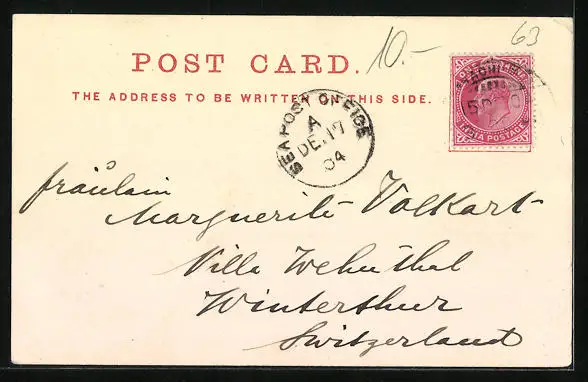 63
10.-
POST CARD.
THE ADDRESS TO BE WRITTEN THIS SIDE.
SEA POST OFFICE
A
DE.17
04
INDIA POSTAGE
fräulein
Marguerite Volkart
Villa Wehnthal
Winterthur
Switzerland